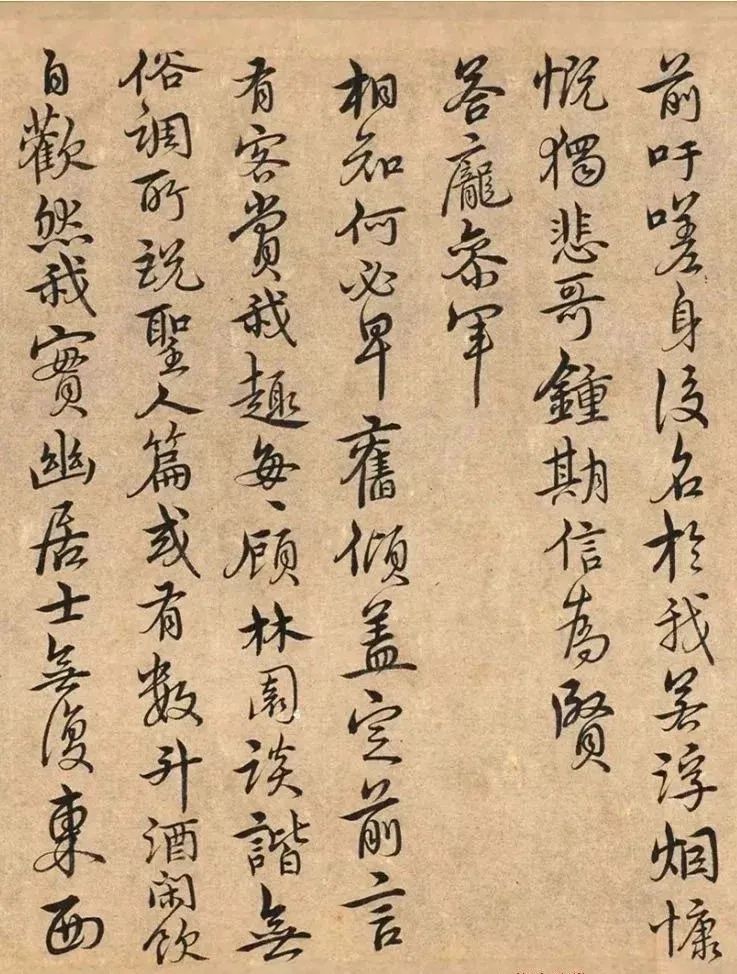 前吁嗟身後名於我若浮烟慷
慨獨悲哥鍾期信為賢
答龐參軍
相知何必早舊傾盖定前言
有客賞我趣每〻顧林園談諧無
俗調所說聖人篇或有數升酒閑飲
自歡然我實幽居士無復東西